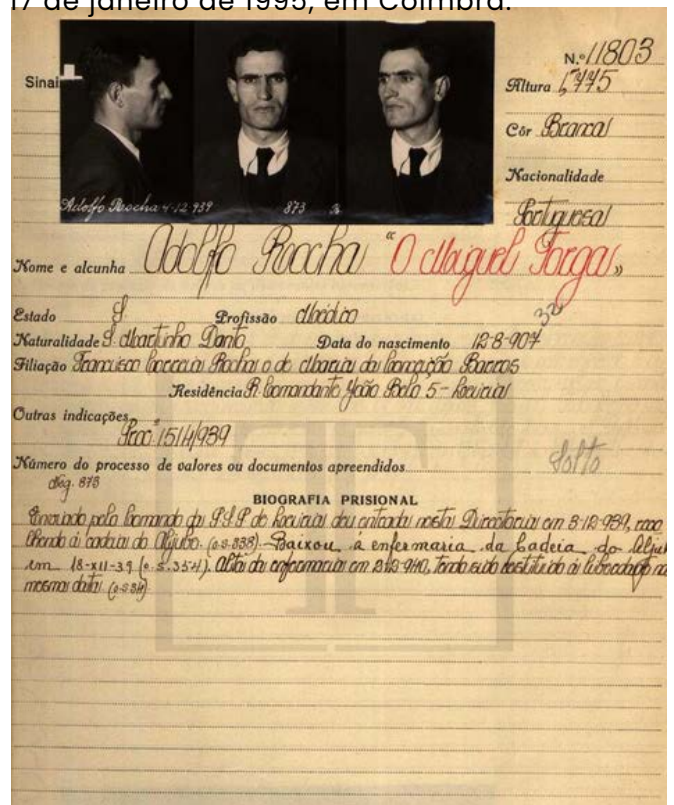 17 de janeiro de 1995, em Coimbra.
N.º 11803
Sinais
Altura 1,775
Côr Branca
Nacionalidade
Portuguesa
Adolfo Rocha 4-12-939 873
Nome e alcunha Adolfo Rocha "O Miguel Torga"
32
Estado S. Profissão Médico
Naturalidade S. Martinho Danta Data do nascimento 12-8-907
Filiação Francisco Correia Rocha e de Maria da Conceição Barros
Residência R. Comandante João Belo 5 - Leiria
Outras indicações
Procº 1514/939
Número do processo de valores ou documentos apreendidos Solto
Reg. 873
BIOGRAFIA PRISIONAL
Enviado pelo Comando da P.S.P. de Leiria deu entrada nesta Directoria em 3-12-939, reco
lhendo á cadeia do Aljube. (o.s. 338). Baixou á enfermaria da Cadeia do Alju
em 18-XII-39 (o.s. 354). Alta da enfermaria em 2-12-940, tendo sido restituido á liberdade na
mesma data (o.s.34).